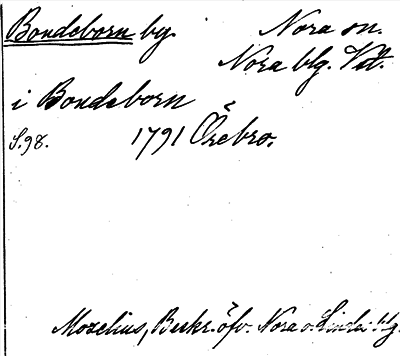 Bondeborn by. Nora sn.
Nora blg. Vstl.
i Bondeborn
S. 98. 1791 Örebro.
Mozelius, Beskr. öfv. Nora o. Linde blg.